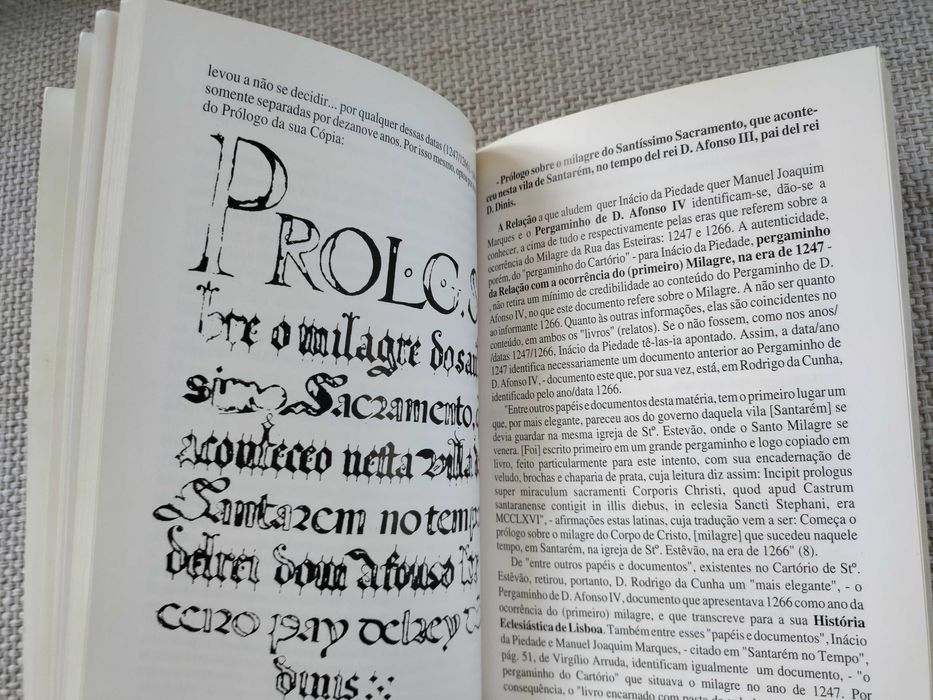 levou a não se decidir... por qualquer dessas datas (1247/1266)
somente separadas por dezanove anos. Por isso mesmo,
do Prólogo da sua Cópia:
PROLOGO.S
bre o milagre do san
simo Sacramento,
aconteceo nesta villa
Santarem no temp
delrei dom Afonso
ceiro pay delrey
dinis :·:
- Prólogo sobre o milagre do Santíssimo Sacramento, que aconte-
ceu nesta vila de Santarém, no tempo del rei D. Afonso III, pai del rei
D. Dinis.
A Relação a que aludem quer Inácio da Piedade quer Manuel Joaquim
Marques e o Pergaminho de D. Afonso IV identificam-se, dão-se a
conhecer, a cima de tudo e respectivamente pelas eras que referem sobre a
ocorrência do Milagre da Rua das Esteiras: 1247 e 1266. A autenticidade,
porém, do "pergaminho do Cartório" - para Inácio da Piedade, pergaminho
da Relação com a ocorrência do (primeiro) Milagre, na era de 1247 -
, não retira um mínimo de credibilidade ao conteúdo do Pergaminho de D.
Afonso IV, no que este documento refere sobre o Milagre. A não ser quanto
ao informante 1266. Quanto às outras informações, elas são coincidentes no
conteúdo, em ambos os "livros" (relatos). Se o não fossem, como nos anos/
/datas 1247/1266, Inácio da Piedade tê-las-ia apontado. Assim, a data/ano
1247 identifica necessariamente um documento anterior ao Pergaminho de
D. Afonso IV, - documento este que, por sua vez, está, em Rodrigo da Cunha,
identificado pelo ano/data 1266.
"Entre outros papéis e documentos desta matéria, tem o primeiro lugar um
que, por mais elegante, pareceu aos do governo daquela vila [Santarém] se
devia guardar na mesma igreja de Stº. Estevão, onde o Santo Milagre se
venera. [Foi] escrito primeiro em um grande pergaminho e logo copiado em
livro, feito particularmente para este intento, com sua encadernação de
veludo, brochas e chaparia de prata, cuja leitura diz assim: Incipit prologus
super miraculum sacramenti Corporis Christi, quod apud Castrum
santaranense contigit in illis diebus, in eclesia Sancti Stephani, era
MCCLXVI", - afirmações estas latinas, cuja tradução vem a ser: Começa o
prólogo sobre o milagre do Corpo de Cristo, [milagre] que sucedeu naquele
tempo, em Santarém, na igreja de Stº. Estêvão, na era de 1266" (8).
De "entre outros papéis e documentos", existentes no Cartório de Stº.
Estêvão, retirou, portanto, D. Rodrigo da Cunha um "mais elegante", - o
Pergaminho de D. Afonso IV, documento que apresentava 1266 como ano da
ocorrência do (primeiro) milagre, e que transcreve para a sua História
Eclesiástica de Lisboa. Também entre esses "papéis e documentos", Inácio
da Piedade e Manuel Joaquim Marques, - citado em "Santarém no Tempo",
pág. 51, de Virgílio Arruda, identificam igualmente um documento, - "o
pergaminho do Cartório" que situava o milagre no ano de 1247. Por
consequência, o "livro encarnado com pasta de